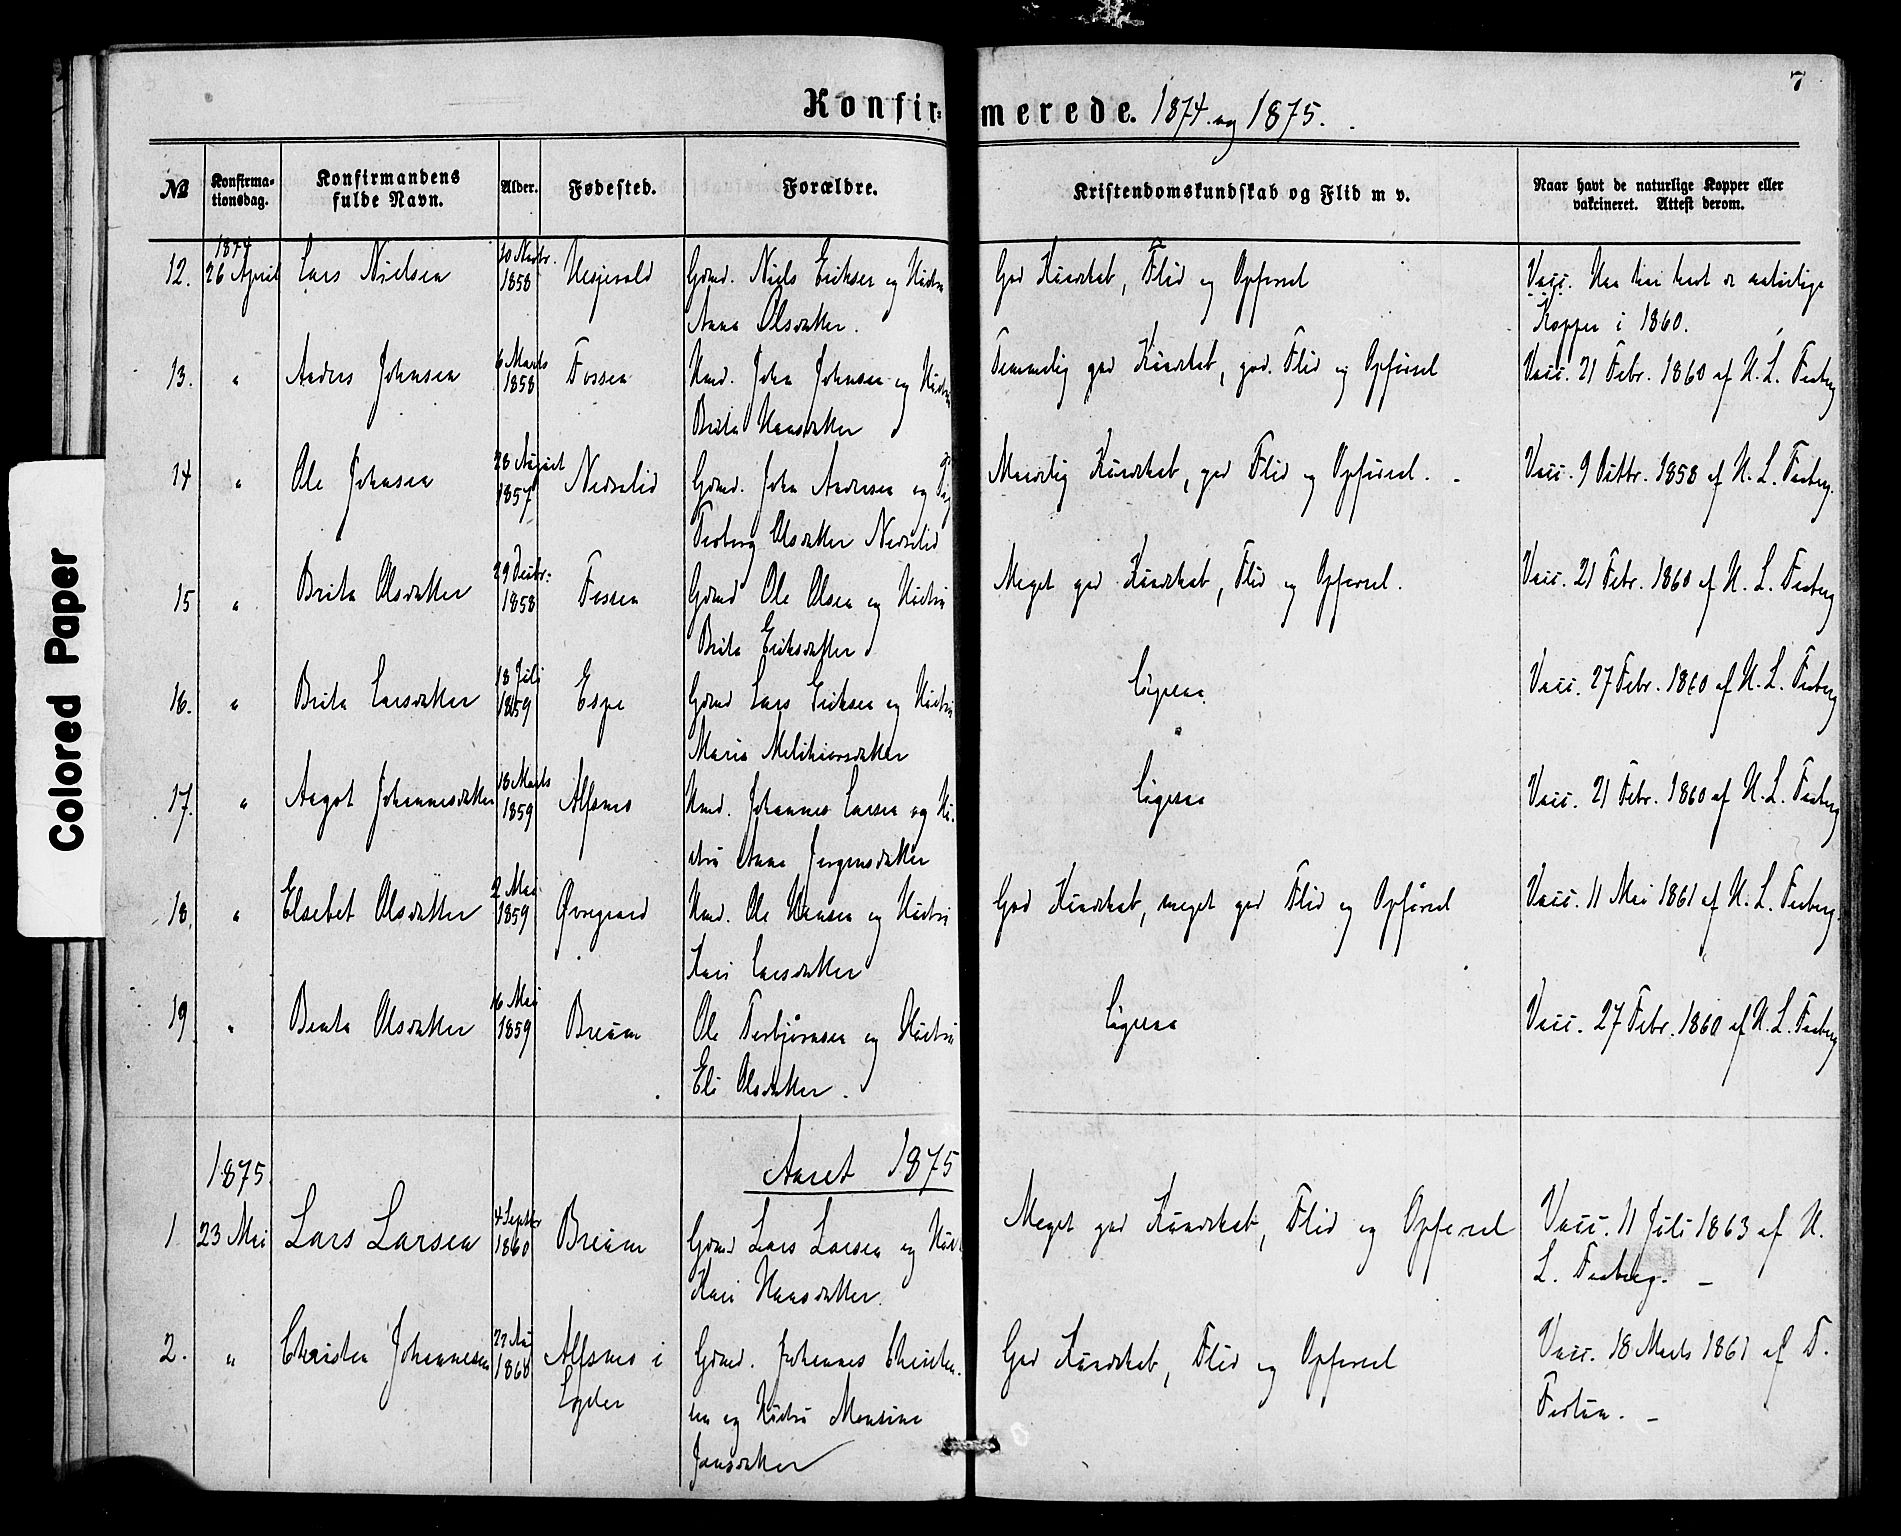 7
Konfirmerede. 1874 og 1875.
Colored Paper
No
Konfirma-
tionsdag.
Konfirmandens
fulde Navn.
Alder.
Fødested.
Forældre.
Kristendomskundskab og Flid m v.
Naar havt de naturlige Kopper eller
vakcineret. Attest derom.
1874
12. 26 April Lars Nielsen 10 Novbr. 1858 Gdmd. Niels Eriksen og Hustru
Anna Olsdatter.
God Kundskab, Flid og Opførsel
Vacc. Naa han havt de naturlige
Kopper i 1860.
13. " Anders Johnsen 6 Marts 1858 Fossen Hmd. John Johnsen og Hustru
Brita Hansdatter
Temmelig god Kundskab, god Flid og Opførsel
Vacc. 21 Febr. 1860 af N. L. Feeberg
14 " Ole Johnsen 28 August 1857 Nedrelid Gdmd. John Andersen og Pige
Torborg Olsdatter Nedrelid
Maadelig Kundskab, god Flid og Opførsel. -
Vacc. 9 Octbr. 1858 af N. L. Feeberg.
15 " Brita Olsdatter 29 Decbr. 1858 Fossen Gdmd Ole Olsen og Hustru
Brita Eriksdatter
Meget god Kundskab, Flid og Opførsel.
Vacc. 21 Febr. 1860 af N. L. Feeberg
16. " Brita Larsdatter 18 Juli 1859 Espe Gdmd Lars Eriksen og Hustru
Maria Melchiorsdatter
Ligesaa
Vacc. 27 Febr. 1860 af N. L. Feeberg
17. " Aagot Johannesdatter 18 Marts 1859 Alfsnes Hmd. Johannes Larsen og Hu-
stru Anna Jørgensdatter
Ligesaa
Vacc. 21 Febr. 1860 af N. L. Feeberg
18. " Elsebet Olsdatter 2 Mai 1859 Øvregaard Hmd. Ole Hansen og Hustru
Kari Larsdatter
God Kundskab, meget god Flid og Opførsel
Vacc. 11 Mai 1861 af N. L. Feeberg.
19 " Benta Olsdatter 16 Mai 1859 Breium Ole Torbjørnsen og Hustru
Eli Olsdatter.
Ligesaa
Vacc. 27 Febr. 1860 af N. L. Feeberg
Aaret 1875
1875
1 23 Mai Lars Larsen 4 Septbr 1860 Breium Gdmd Lars Larsen og Hust.
Kari Hansdatter.
Meget god Kundskab, Flid og Opførsel
Vacc. 11 Juli 1863 af N.
L. Feeberg. -
2. " Christen Johannesen 1860 Alfsnes i
Gdmd. Johannes Christen-
sen og Hustru Monsine
Jansdatter
God Kundskab, Flid og Opførsel
Vacc. 18 Marts 1861 af T.